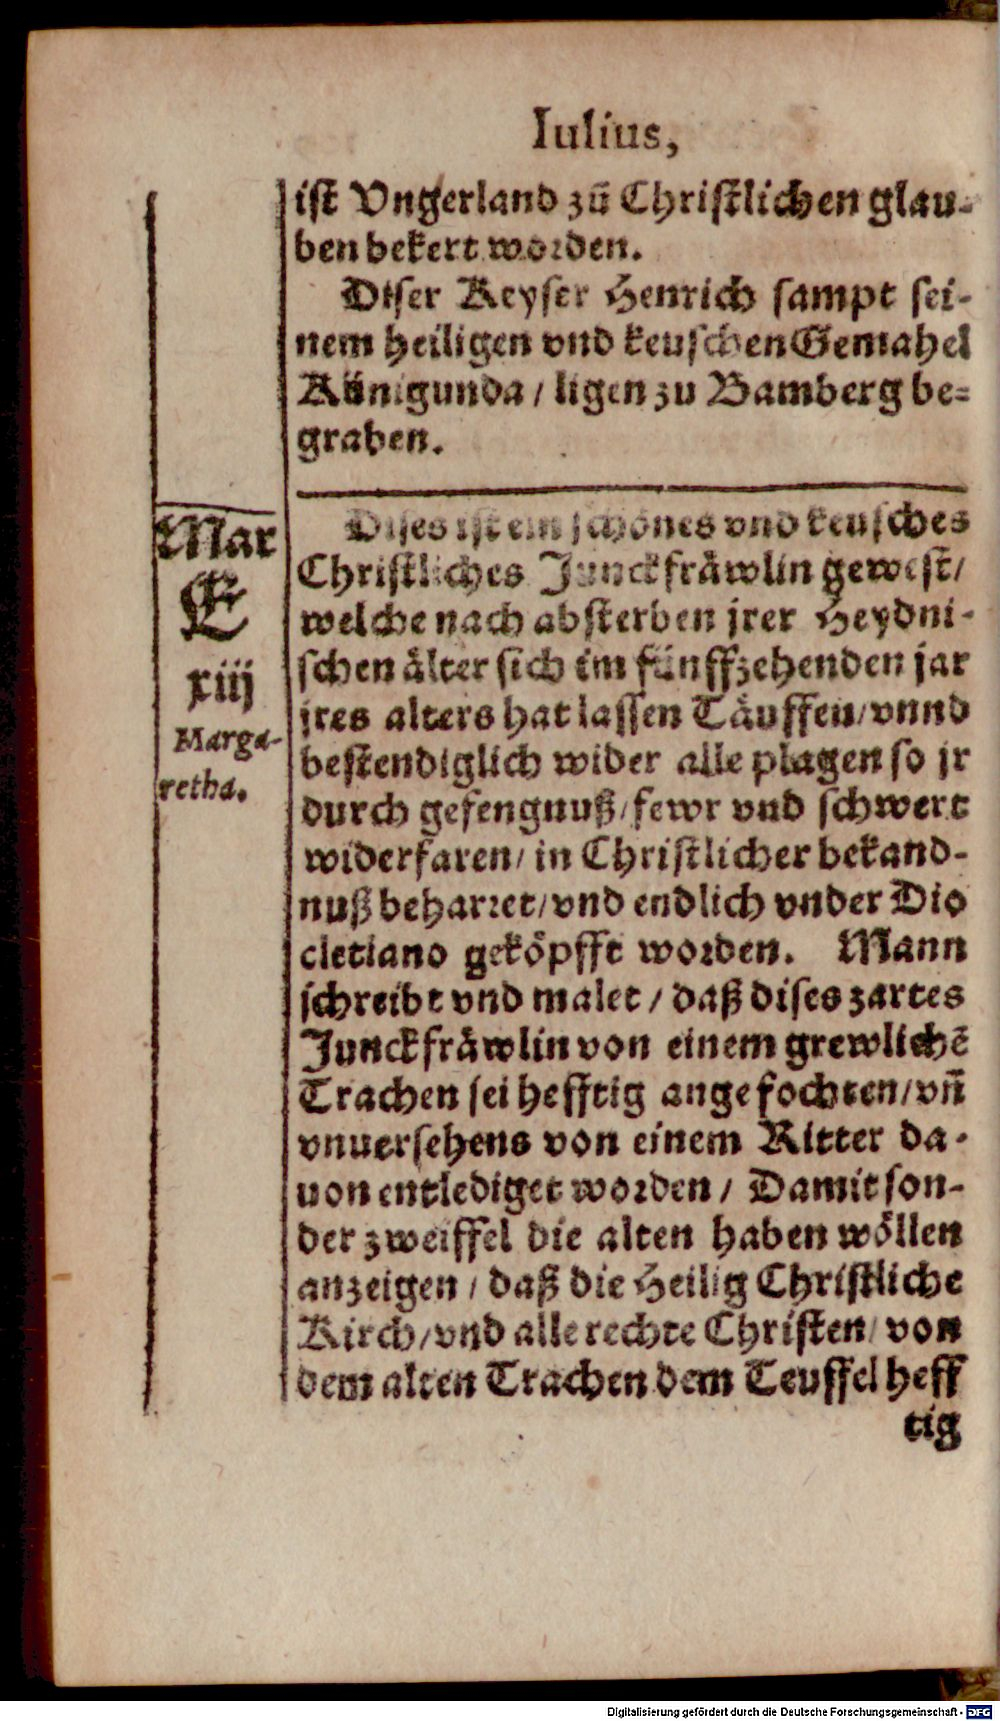 Iulius,
ist Vngerland zů Christlichen glau-
ben bekert worden.
Diser Keyser Henrich sampt sei-
nem heiligen vnd keuschen Gemahel
Künigunda / ligen zu Bamberg be-
graben.
Mar
E
xiij
Marga-
retha.
Dises ist ein schönes vnd keusches
Christliches Junckfräwlin gewest/
welche nach absterben jrer Heydni-
schen älter sich im fünffzehenden jar
jres alters hat lassen Täuffen/ vnnd
bestendiglich wider alle plagen so jr
durch gefengnuß/ fewr vnd schwert
widerfaren/ in Christlicher bekand-
nuß beharret/ vnd endlich vnder Dio
cletiano geköpfft worden. Mann
schreibt vnd malet / daß dises zartes
Junckfräwlin von einem grewlichē
Trachen sei hefftig angefochten/ vñ
vnuersehens von einem Ritter da-
uon entlediget worden / Damit son-
der zweiffel die alten haben wöllen
anzeigen / daß die Heilig Christliche
Kirch/ vnd alle rechte Christen/ von
dem alten Trachen dem Teuffel heff
tig
Digitalisierung gefördert durch die Deutsche Forschungsgemeinschaft - DFG